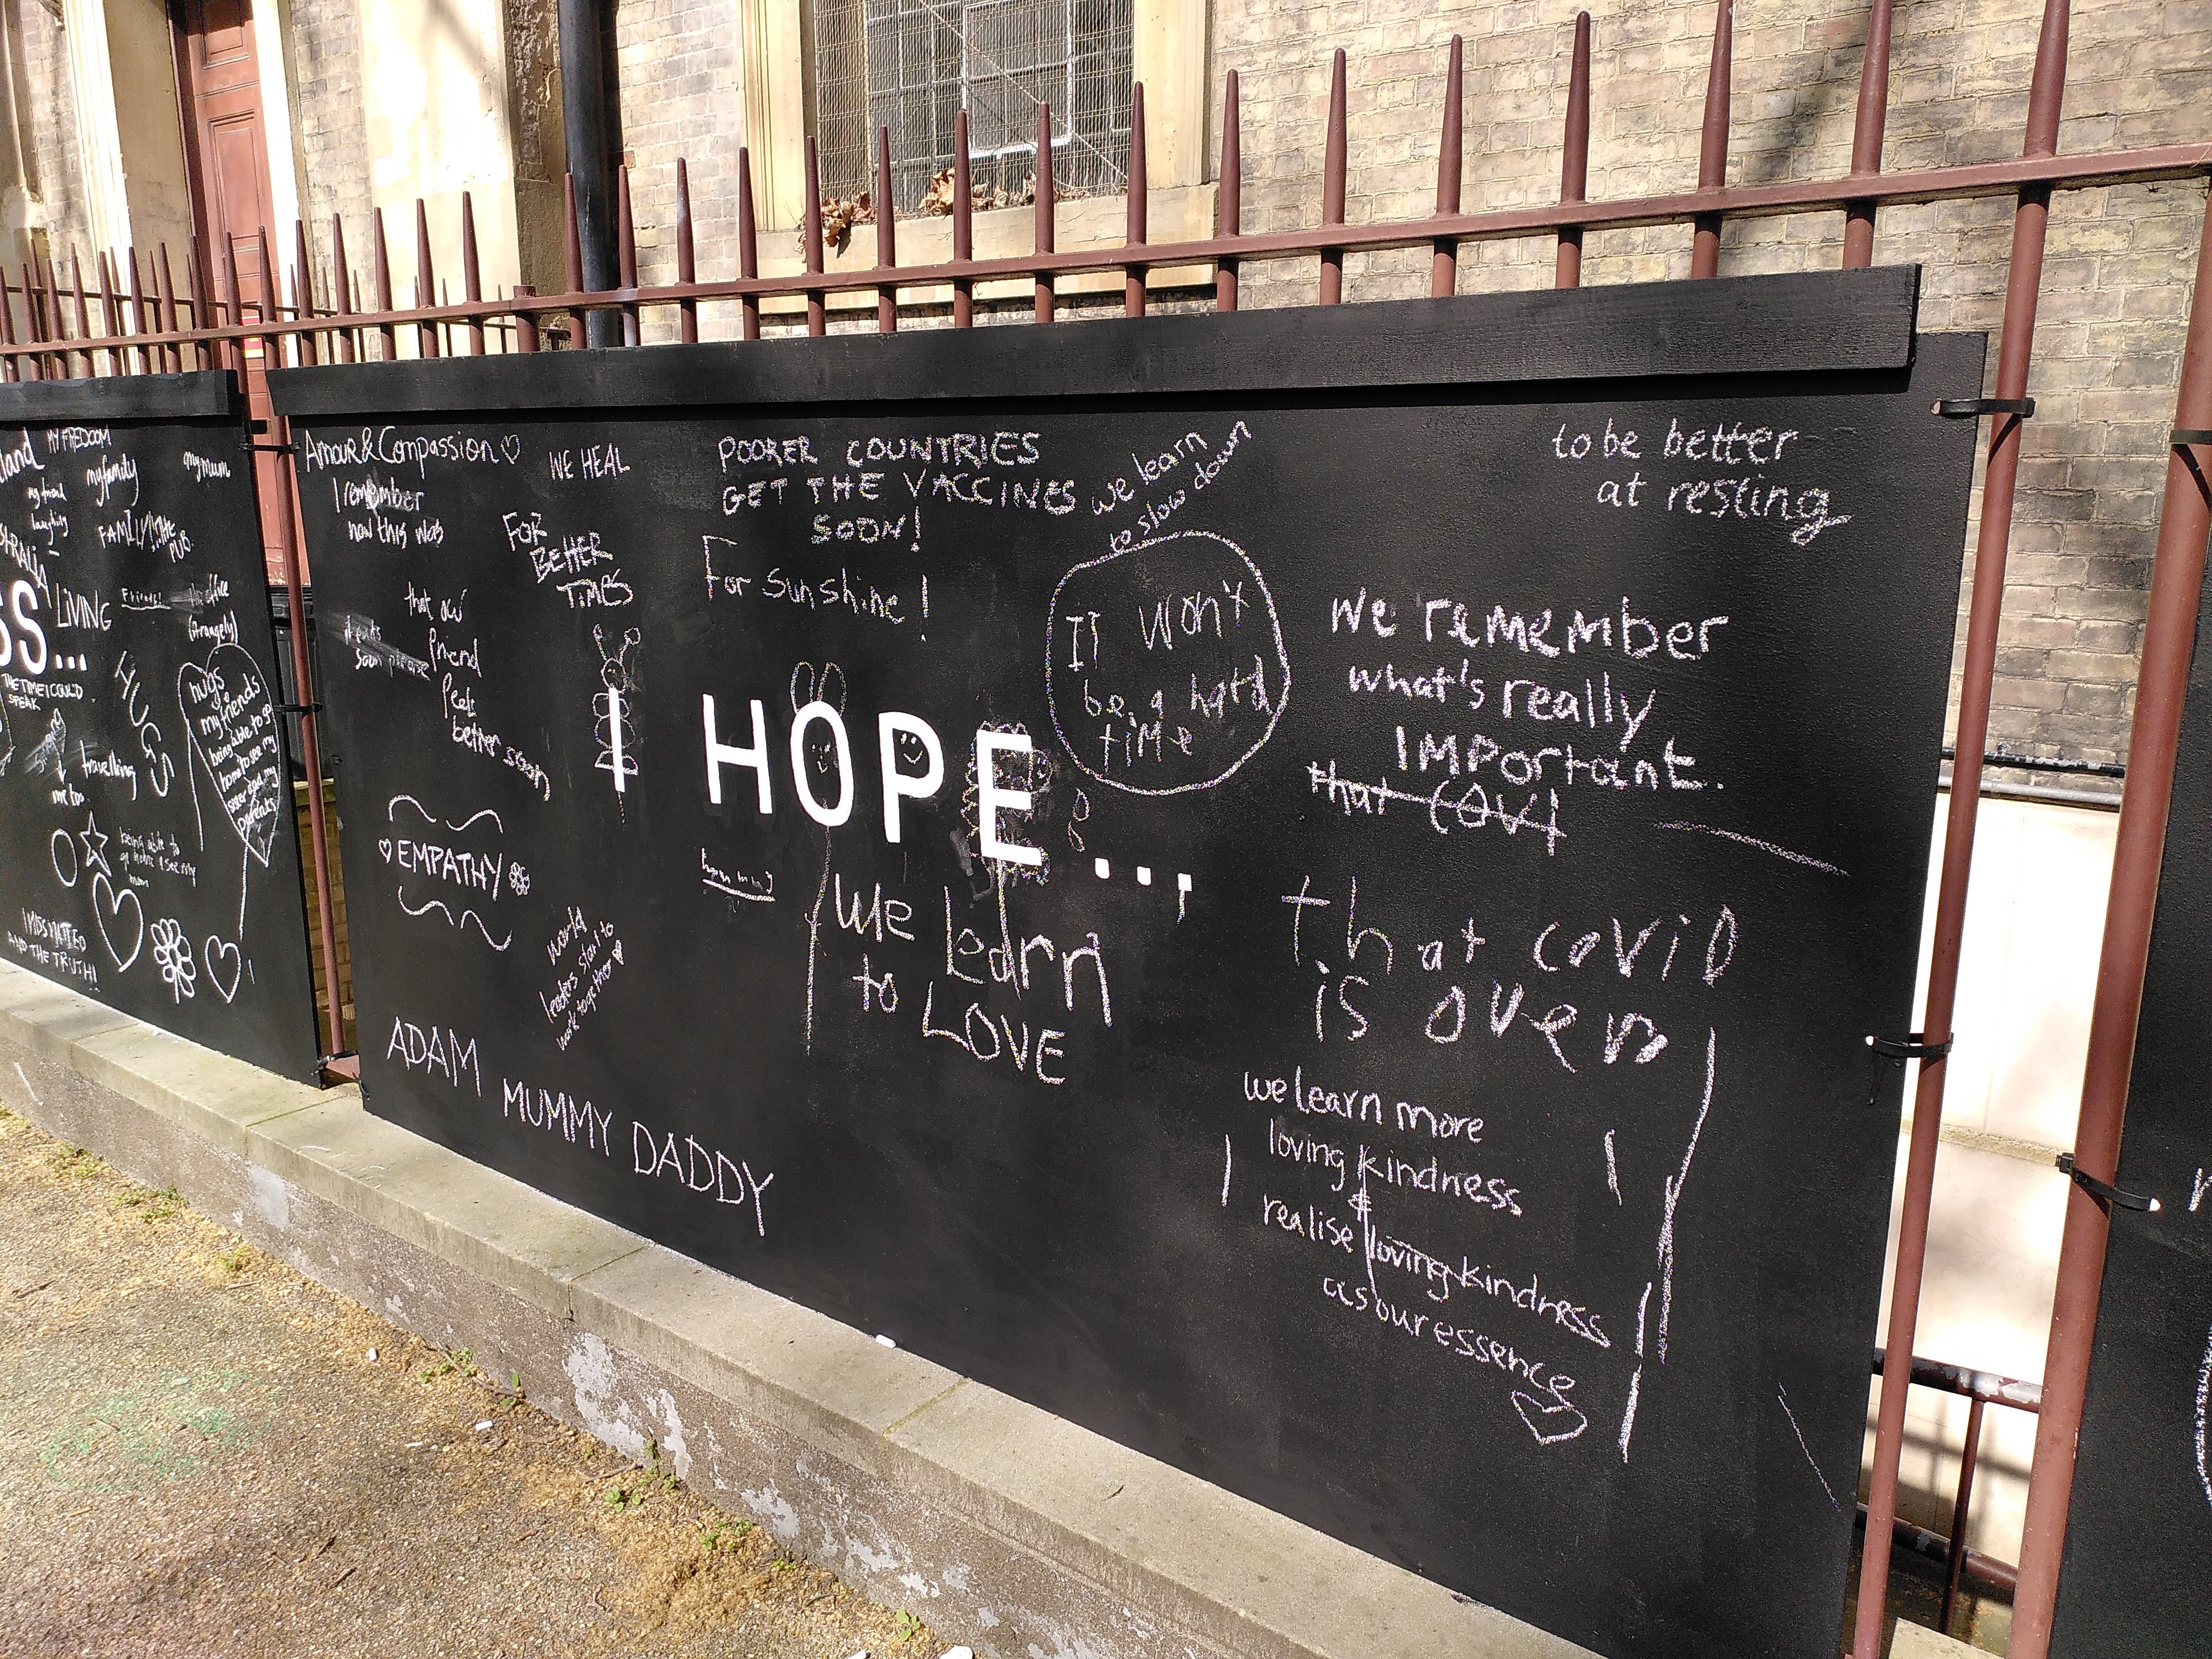 land
MY FREDOOM
my family
my mum
my friend
laughing
FAMILY!!
THE
PUB.
SS...
LiViNG
Friends!
office
(strangely)
THE TIME I COULD
SPEAK
HUGS
travelling
me too
hugs
my friends
being able to go
home to see my
sister and my
parents
being able to
go home & see my
mum
AND THE TRUTH!
Amour & Compassion
I remember
how this was
WE HEAL
FOR
BETTER
TIMES
POORER COUNTRIES
GET THE VACCINES
SOON!
we learn
to slow down
to be better
at resting
For sunshine!
that our
friend
feels
better soon
soon please
It won't
be a hard
time
We remember
what's really
IMPortant.
that COVI
I HOPE...
EMPATHY
world
leaders start to
work together
we learn
to LOVE
that covid
is over
ADAM MUMMY DADDY
we learn more
loving kindness
&
realise loving kindness
as our essence